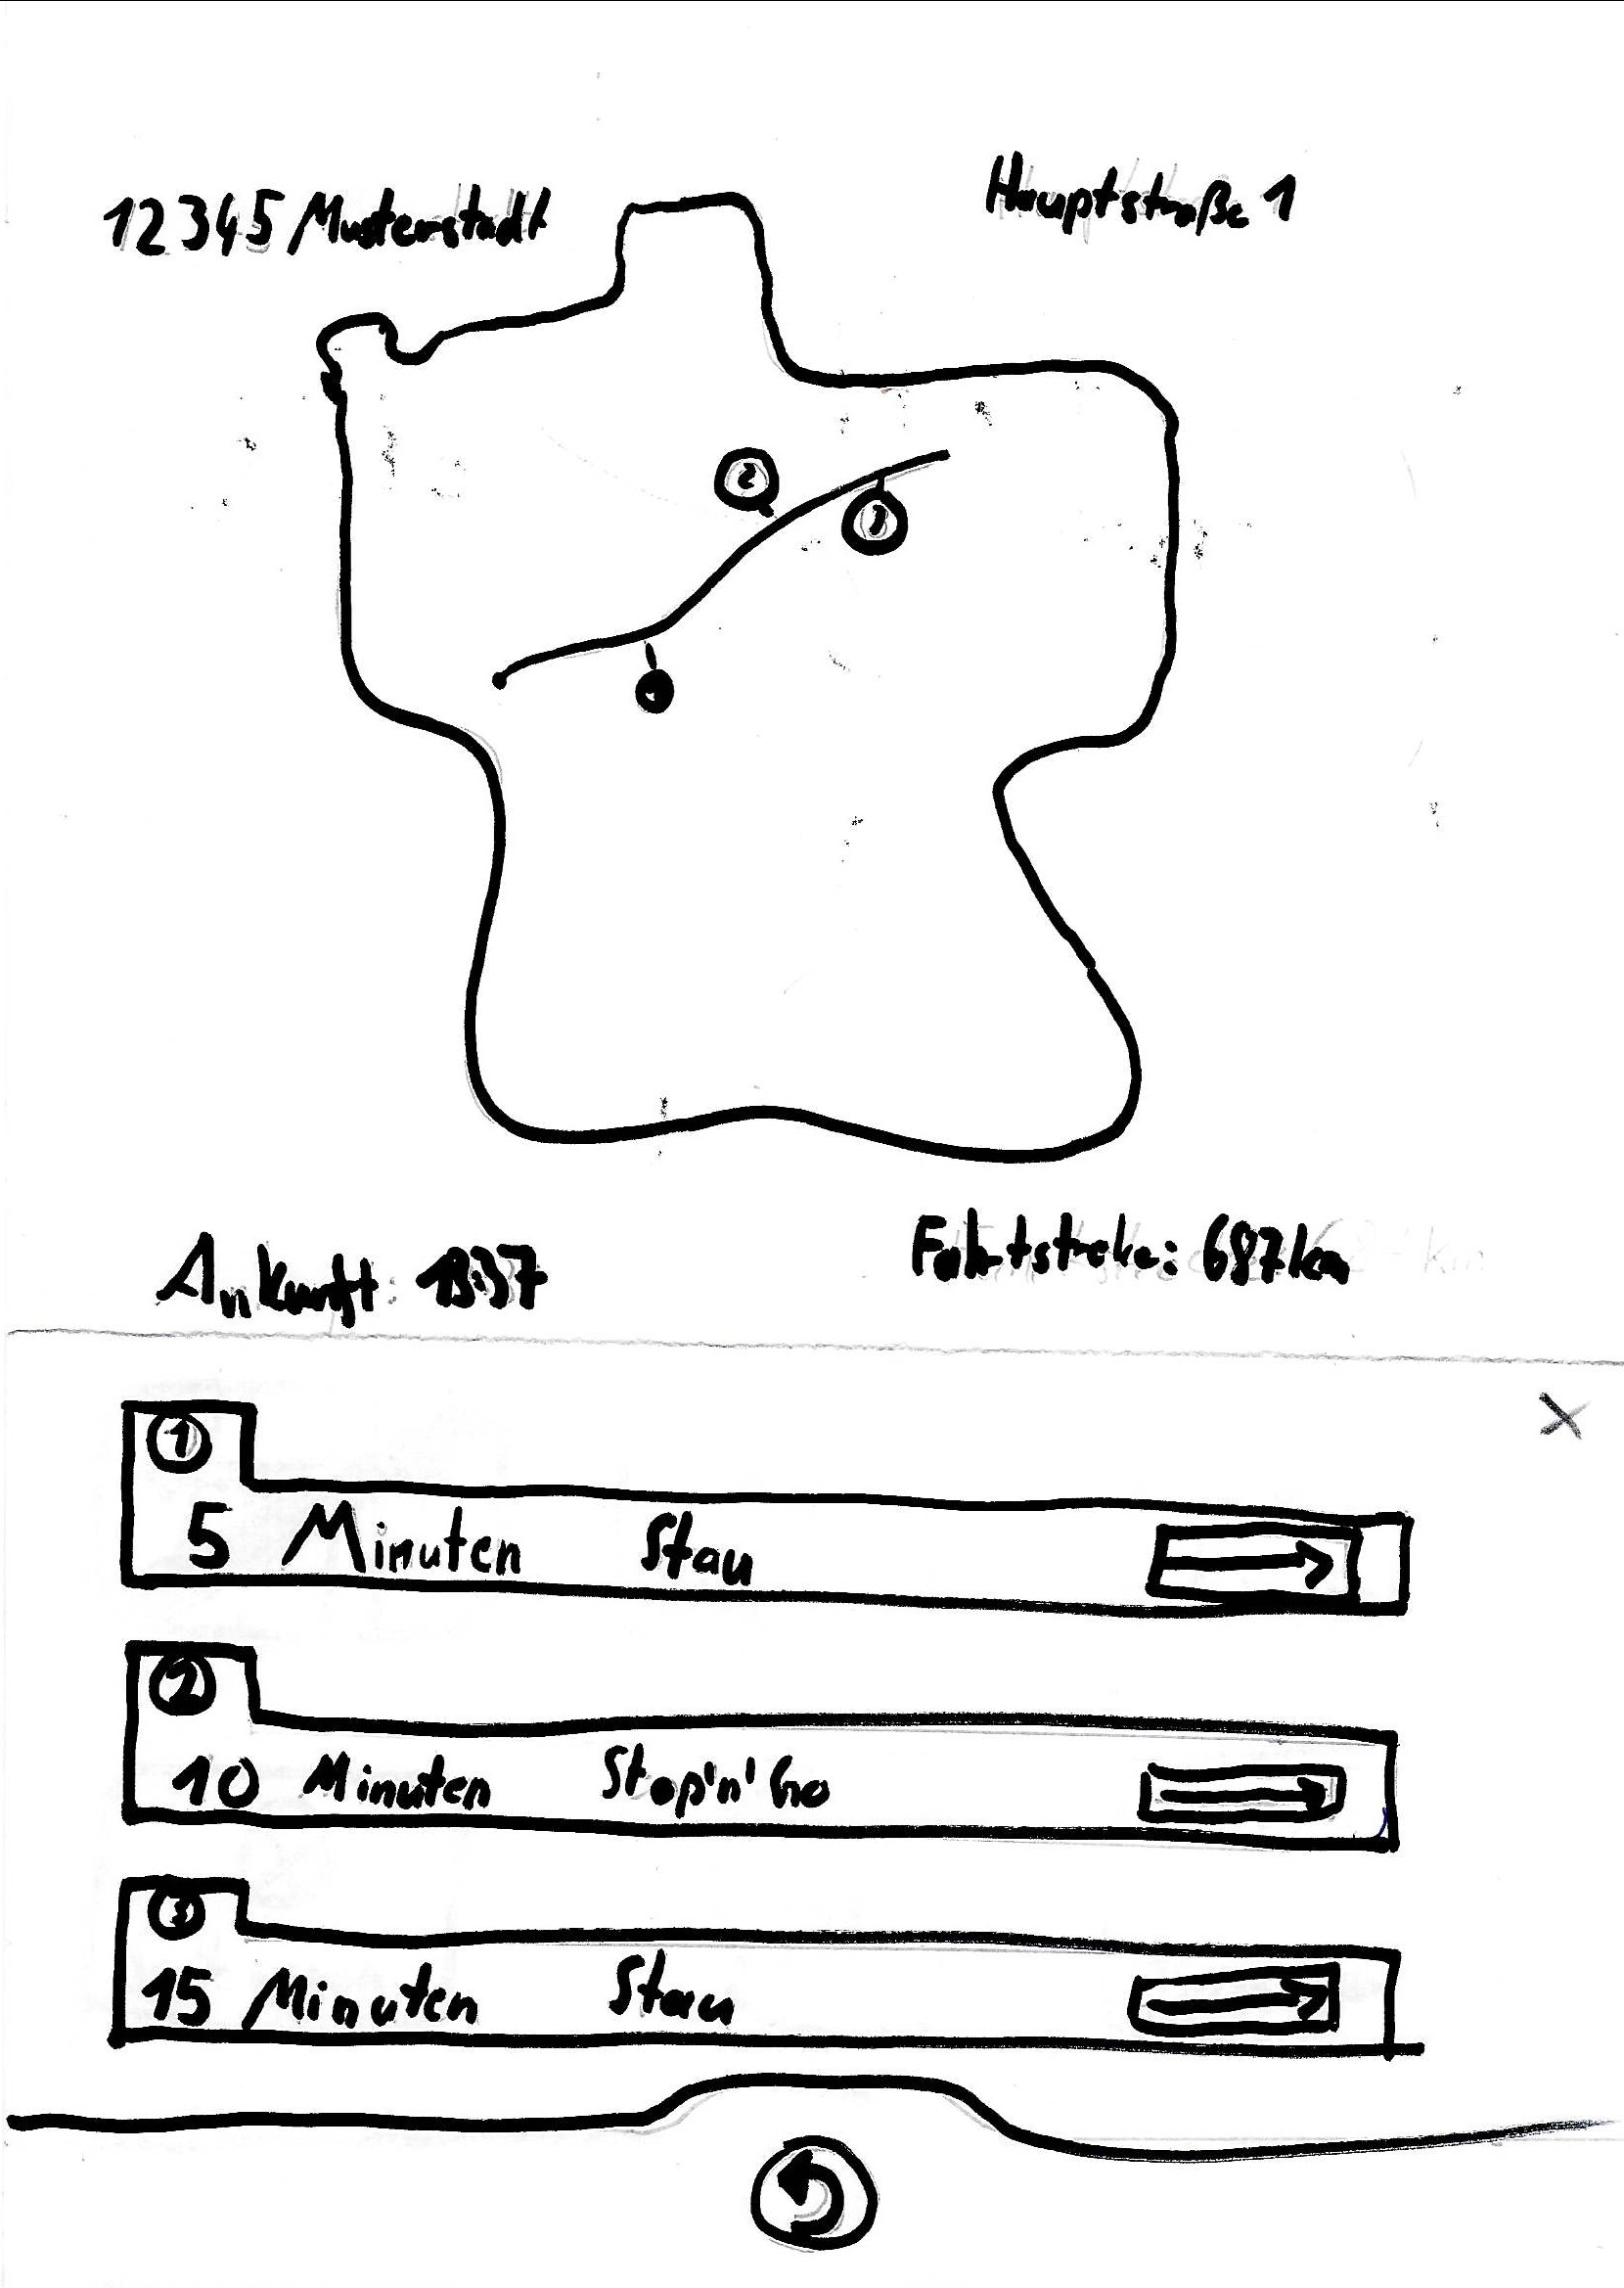 12345 Musterstadt
Hauptstraße 1
2
1
Ankunft: 13:37
Fahrtstreke: 687km
1
5 Minuten Stau
2
10 Minuten Stop'n'Go
3
15 Minuten Stau